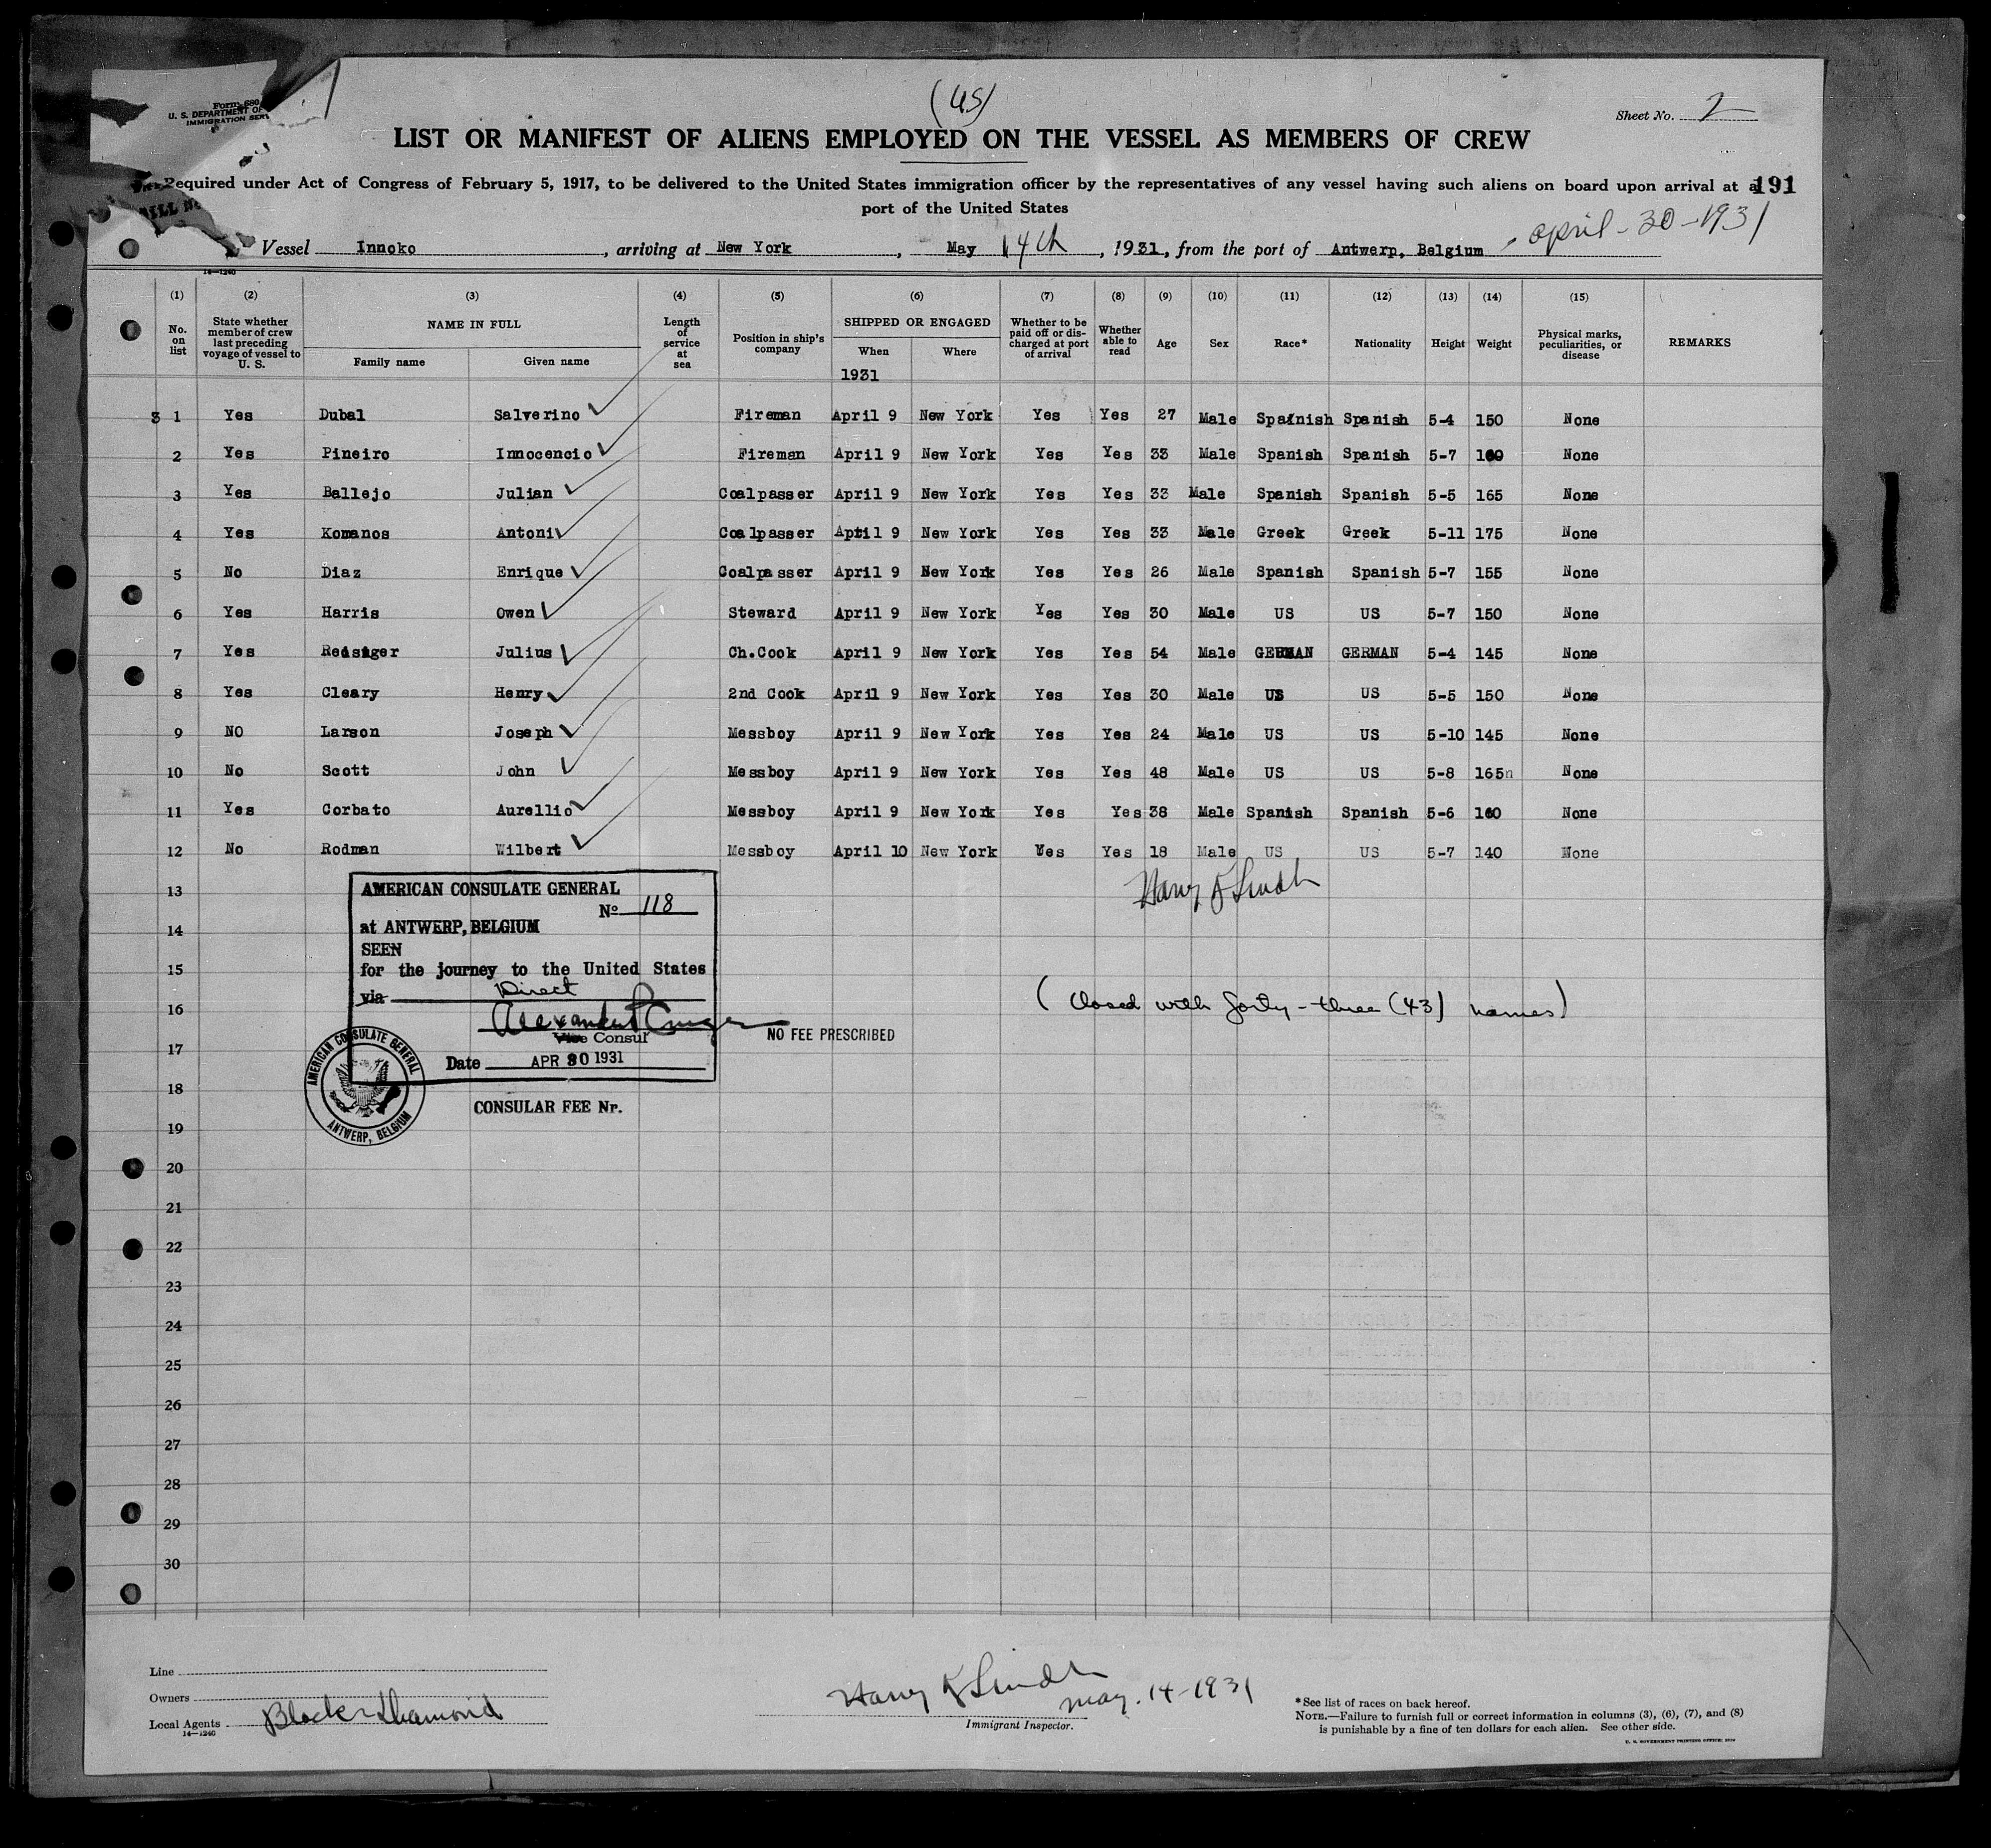 Form 680
U. S. DEPARTMENT OF
IMMIGRATION SER
(US)
Sheet No. 2
LIST OR MANIFEST OF ALIENS EMPLOYED ON THE VESSEL AS MEMBERS OF CREW
Required under Act of Congress of February 5, 1917, to be delivered to the United States immigration officer by the representatives of any vessel having such aliens on board upon arrival at a
port of the United States
191
Vessel Innoko, arriving at New York, May 14th, 1931, from the port of Antwerp, Belgium, April-30-1931
14—1240
(1) (2) (3) (4) (5) (6) (7) (8) (9) (10) (11) (12) (13) (14) (15)
No. on list
State whether member of crew last preceding voyage of vessel to U. S.
NAME IN FULL
Family name Given name
Length of service at sea
Position in ship's company
SHIPPED OR ENGAGED
When Where
1931
Whether to be paid off or discharged at port of arrival
Whether able to read
Age Sex Race* Nationality Height Weight
Physical marks, peculiarities, or disease
REMARKS
1 Yes Dubal Salverino Fireman April 9 New York Yes Yes 27 Male Spainish Spanish 5-4 150 None
2 Yes Pineiro Innocencio Fireman April 9 New York Yes Yes 33 Male Spanish Spanish 5-7 160 None
3 Yes Ballejo Julian Coalpasser April 9 New York Yes Yes 33 Male Spanish Spanish 5-5 165 None
4 Yes Komanos Antoni Coalpasser April 9 New York Yes Yes 33 Male Greek Greek 5-11 175 None
5 No Diaz Enrique Coalpasser April 9 New York Yes Yes 26 Male Spanish Spanish 5-7 155 None
6 Yes Harris Owen Steward April 9 New York Yes Yes 30 Male US US 5-7 150 None
7 Yes Reisiger Julius Ch.Cook April 9 New York Yes Yes 54 Male GERMAN GERMAN 5-4 145 None
8 Yes Cleary Henry 2nd Cook April 9 New York Yes Yes 30 Male US US 5-5 150 None
9 NO Larson Joseph Messboy April 9 New York Yes Yes 24 Male US US 5-10 145 None
10 No Scott John Messboy April 9 New York Yes Yes 48 Male US US 5-8 165n None
11 Yes Corbato Aurellio Messboy April 9 New York Yes Yes 38 Male Spanish Spanish 5-6 160 None
12 No Rodman Wilbert Messboy April 10 New York Yes Yes 18 Male US US 5-7 140 None
13
14
15
16
17
18
19
20
21
22
23
24
25
26
27
28
29
30
AMERICAN CONSULATE GENERAL
No 118
at ANTWERP, BELGIUM
SEEN
for the journey to the United States
via Direct
Vice Consul
Date APR 30 1931
NO FEE PRESCRIBED
CONSULAR FEE Nr.
AMERICAN CONSULATE GENERAL
ANTWERP, BELGIUM
(Closed with forty-three (43) names)
Line
Owners
Local Agents Black Diamond
14—1240
May. 14-1931
Immigrant Inspector.
*See list of races on back hereof.
NOTE.—Failure to furnish full or correct information in columns (3), (6), (7), and (8)
is punishable by a fine of ten dollars for each alien. See other side.